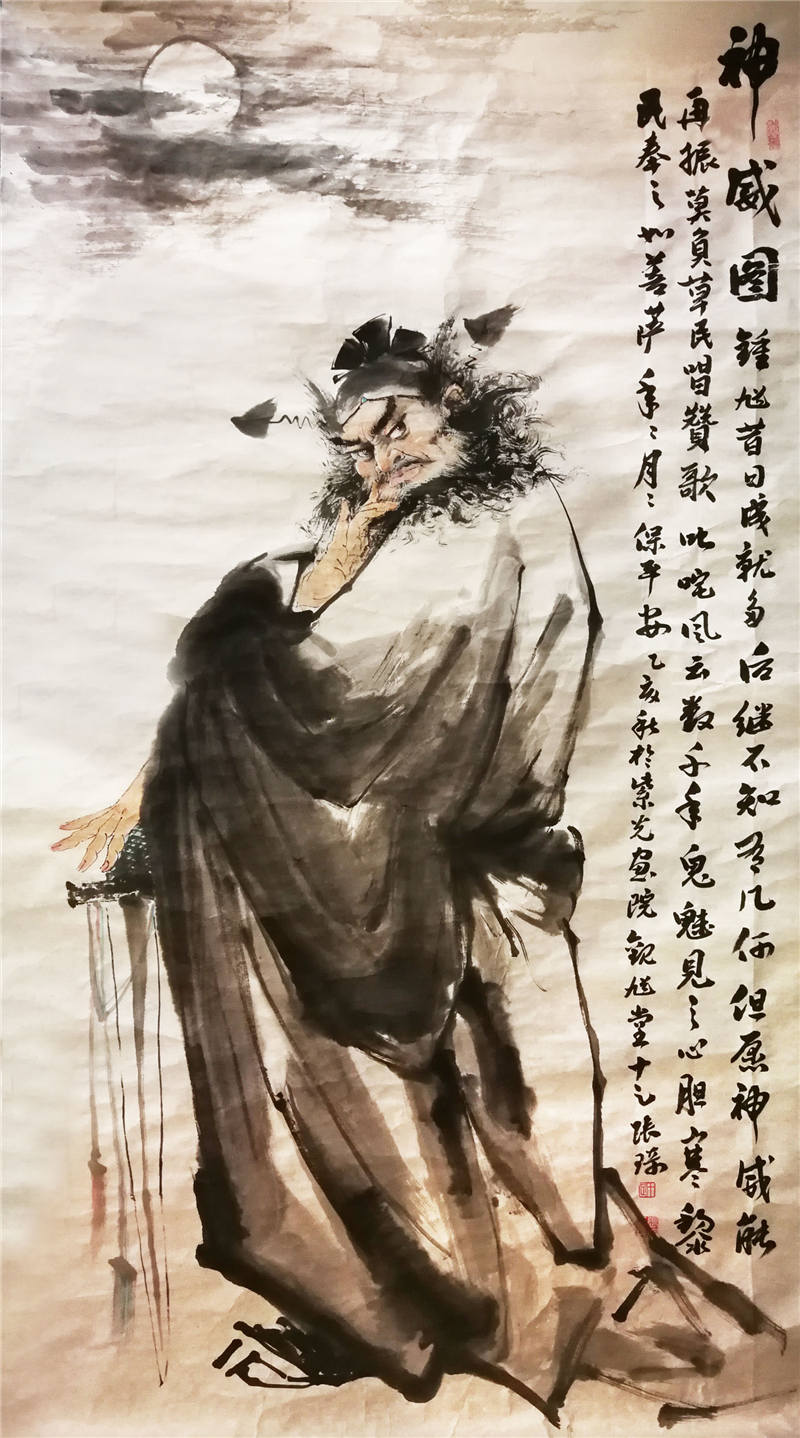 神威图 锺馗昔日成就多后继不知有几何但愿神威能
再振莫负草民唱赞歌叱咤风云数千年鬼魅见之心胆寒黎
民奉之如菩萨年〻月〻保平安 乙亥秋於紫光画院观馗堂十之张璨